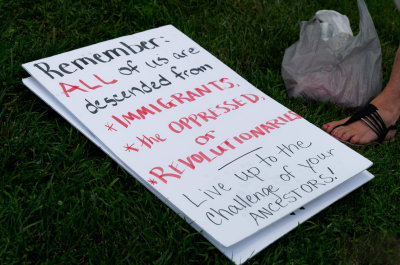 Remember:
ALL of us are
descended from
*IMMIGRANTS,
*the OPPRESSED,
or
*REVOLUTIONARIES
Live up to the
Challenge of your
ANCESTORS!